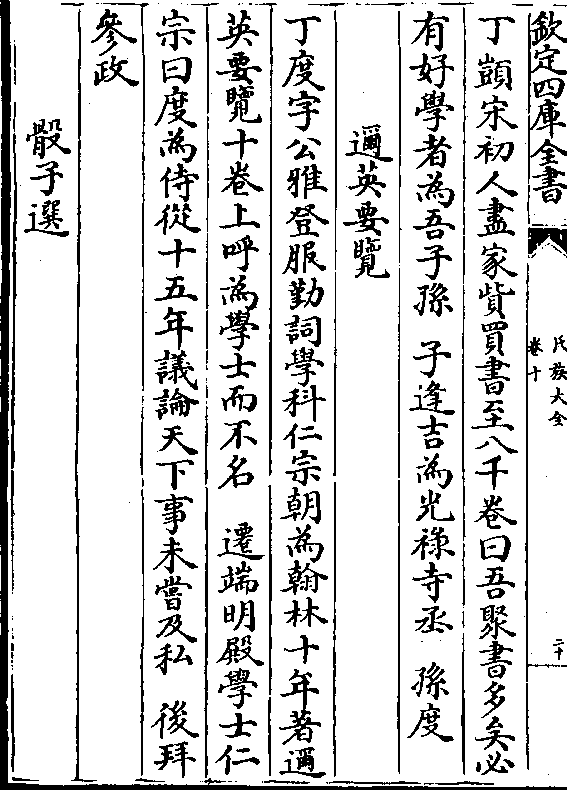 欽定四庫全書
氏族大全
卷十
二十
丁顗宋初人盡家貲買書至八千卷曰吾聚書多矣必
有好學者為吾子孫　子逢吉為光祿寺丞　孫度
邇英要覽
丁度字公雅登服勤詞學科仁宗朝為翰林十年著邇
英要覽十卷上呼為學士而不名　遷端明殿學士仁
宗曰度為侍從十五年議論天下事未嘗及私　後拜
參政
骰子選